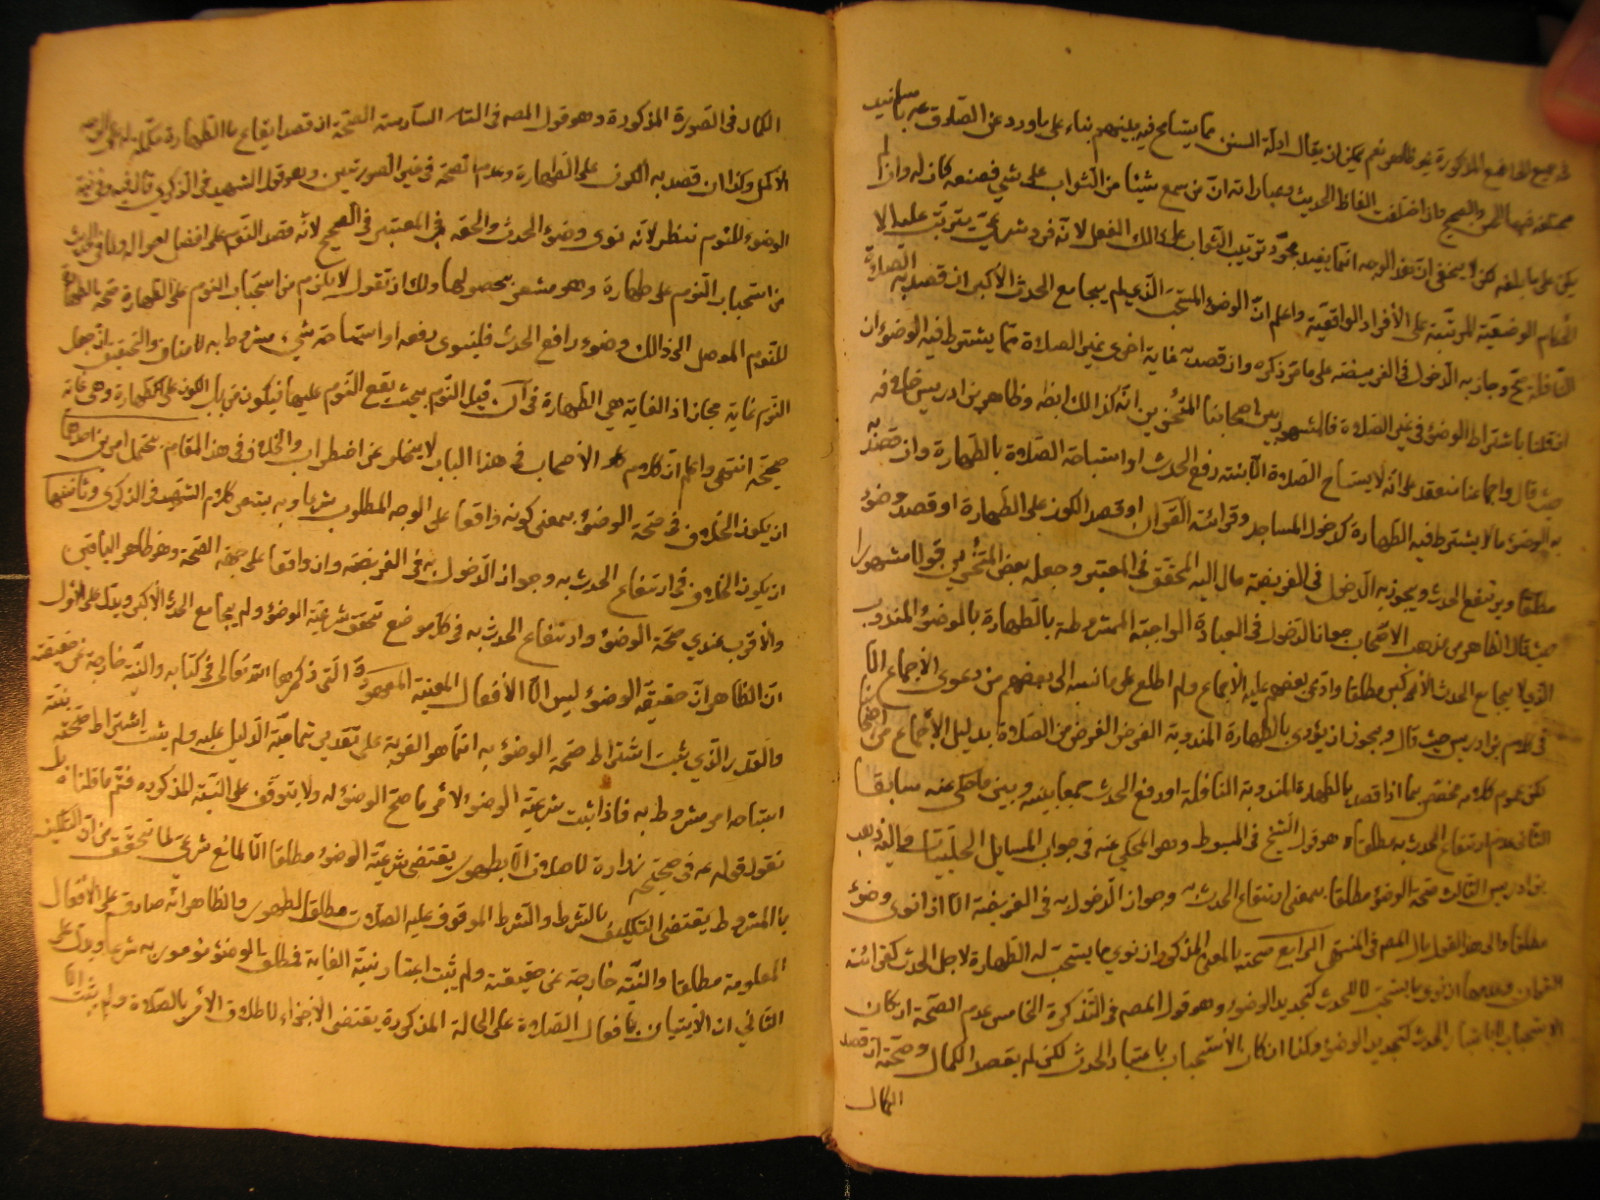 في جميع المواضع المذكورة غير ظاهر نعم يمكن ان يقال ادلة السنن مما يتسامح فيه بينهم بناء على ما ورد عن الصادق عه باسانيد
مختلفة فيها الحسن والصحيح وان اختلفت الفاظ الحديث وعباراته ان من سمع شيئا من الثواب على شي فصنعه كان له وان لم
يكن على ما بلغه لكن لا يخفى ان هذا الوجه انما يفيد مجرد ترتب الثواب على ذلك الفعل لا انه فرد شرعي يترتب عليه الا
الاحكام الوضعية المرتبة على الأفراد الواقعية واعلم ان الوضؤ المستحب الذي لم يجامع الحدث الأكبر ان قصد به الصلاة
النافلة صح وجاز به الدخول في الفريضة على ما مر ذكره وان قصد به غاية اخرى غير الصلاة مما يشترط فيه الوضؤ ان
قلنا باشتراط الوضؤ في غير الصلاة فالمشهور بين اصحابنا المتأخرين انه كذلك ايضا وظاهر بن ادريس خلافه
حيث قال واجماعنا منعقد على انه لا يستباح الصلاة الا بنية رفع الحدث او استباحة الصلاة بالطهارة وان قصد به
به الوضؤ ما لا يشترط فيه الطهارة كدخول المساجد وقرائة القرآن او قصد الكون على الطهارة او قصد وضؤ
مطلقا ويرتفع الحدث ويجوز به الدخول في الفريضة مال اليه المحقق في المعتبر وجعله بعض المتأخرين قولا مشهورا
حيث قال الظاهر من مذهب الاصحاب جواز الدخول في العبادة الواجبة المشروطة بالطهارة بالوضؤ المندوب
الذي لا يجامع الحدث الأكبر مطلقا وادعى بعضهم عليه الاجماع ولم اطلع على ما نسبه الى بعضهم من دعوى الاجماع الا
في كلام بن ادريس حيث قال ويجوز ان يؤدى بالطهارة المندوبة الفرض من الصلاة بدليل الاجماع من اصحابنا
لكن عموم كلامه مختص بما اذا قصد بالطهارة المندوبة النافلة او رفع الحدث جمعا بينه وبين ما حكى عنه سابقا
الثاني عدم ارتفاع الحدث به مطلقا وهو قول الشيخ في المبسوط وهو المحكي عنه في جواب المسايل الحلبيات واليه ذهب
بن ادريس الثالث صحة الوضؤ مطلقا بمعنى ارتفاع الحدث به وجواز الدخول به في الفريضة الا اذا نوى وضؤ
مطلقا والى هذا القول مال المصه في المنتهى الرابع صحته بالمعنى المذكور ان نوى ما يستحب له الطهارة لاجل الحدث كقرائة
القران وعدمها ان نوى ما يستحب لا للحدث كتجديد الوضؤ وهو قول المصه في التذكرة الخامس عدم الصحة ان كان
الاستحباب لا باعتبار الحدث كتجديد الوضؤ وكذا ان كان الاستحباب باعتبار الحدث لكن لم يقصد الكمال وصحته ان قصد
الكمال
الكمال في الصورة المذكورة وهو قول المصه في السادسة الصحة ان قصد ايقاع ما الطهارة مكملة له على الوجه
الأكمل وكذا ان قصد به الكون على الطهارة وعدم الصحة في غير الصورتين وهو قول الشهيد في الذكرى قال فيه وفي نية
الوضوء للنوم نظر لانه نوى وضؤ الحدث والحقه في المعتبر في الصحيح لانه قصد النوم على افضل احواله ولما في الحديث
من استحباب النوم على طهارة وهو مشعر بحصولها ولك ان تقول لا يلزم من استحباب النوم على الطهارة صحة الطهارة
للنوم الموصل الى ذلك وضوء رافع الحدث فلينوى رفعه او استباحة شيء مشروط به لا مناف والتحقيق ان جعل
النوم غاية مجاز اذ الغاية هي الطهارة في آن قبل النوم بحيث يقع النوم عليها فيكون من باب الكون على الطهارة وهي غاية
صحيحة انتهى واعلم ان كلام الأصحاب في هذا الباب لا يخلو عن اضطراب والخلاف في هذا المقام يحتمل امرين احدهما
ان يكون الخلاف في صحة الوضؤ بمعنى كونه واقعا على الوجه المطلوب شرعا وبه يشعر كلام الشهيد في الذكرى وثانيهما
ان يكون الخلاف في ارتفاع الحدث به وجواز الدخول به في الفريضة وان واقعا على جهة الصحة وهو ظاهر الباقين
والأقرب عندي صحة الوضؤ وارتفاع الحدث به في كل موضع تحقق شرعية الوضؤ ولم يجامع الحدث الأكبر ويدل على الاول
ان الظاهر ان حقيقة الوضؤ ليس الا الأفعال المعينة المعهودة التي ذكرها الله تعالى في كتابه والنية خارجة عن حقيقته
والقدر الذي ثبت اشتراط صحة الوضؤ به انما هو القربة على تقدير تمامية الدليل عليه ولم يثبت اشتراط صحته بنية
استباحه امر مشروط به فاذا ثبت شرعية الوضؤ لأمر ما صح الوضؤ له ولا يتوقف على النية المذكوره فتم ما قلناه بل
نقول قوله عه في صحيحة زرارة لا صلاة الا بطهور يقتضي شرعية الوضؤ مطلقا الا لمانع شرعي لما تحقق من ان التكليف
بالمشروط يقتضي التكليف بالشرط والشرط الموقوف عليه الصلاة مطلق الطهور والظاهر انه صادق على الأفعال
المعلومة مطلقا والنية خارجة عن حقيقته ولم يثبت اعتبار نية الغاية فمطلق الوضؤ مأمور به شرعا ويدل على
الثاني ان الاتيان بافعال الصلاة على الحالة المذكورة يقتضي الاجزاء لاطلاق الأمر بالصلاة ولم يثبت الا